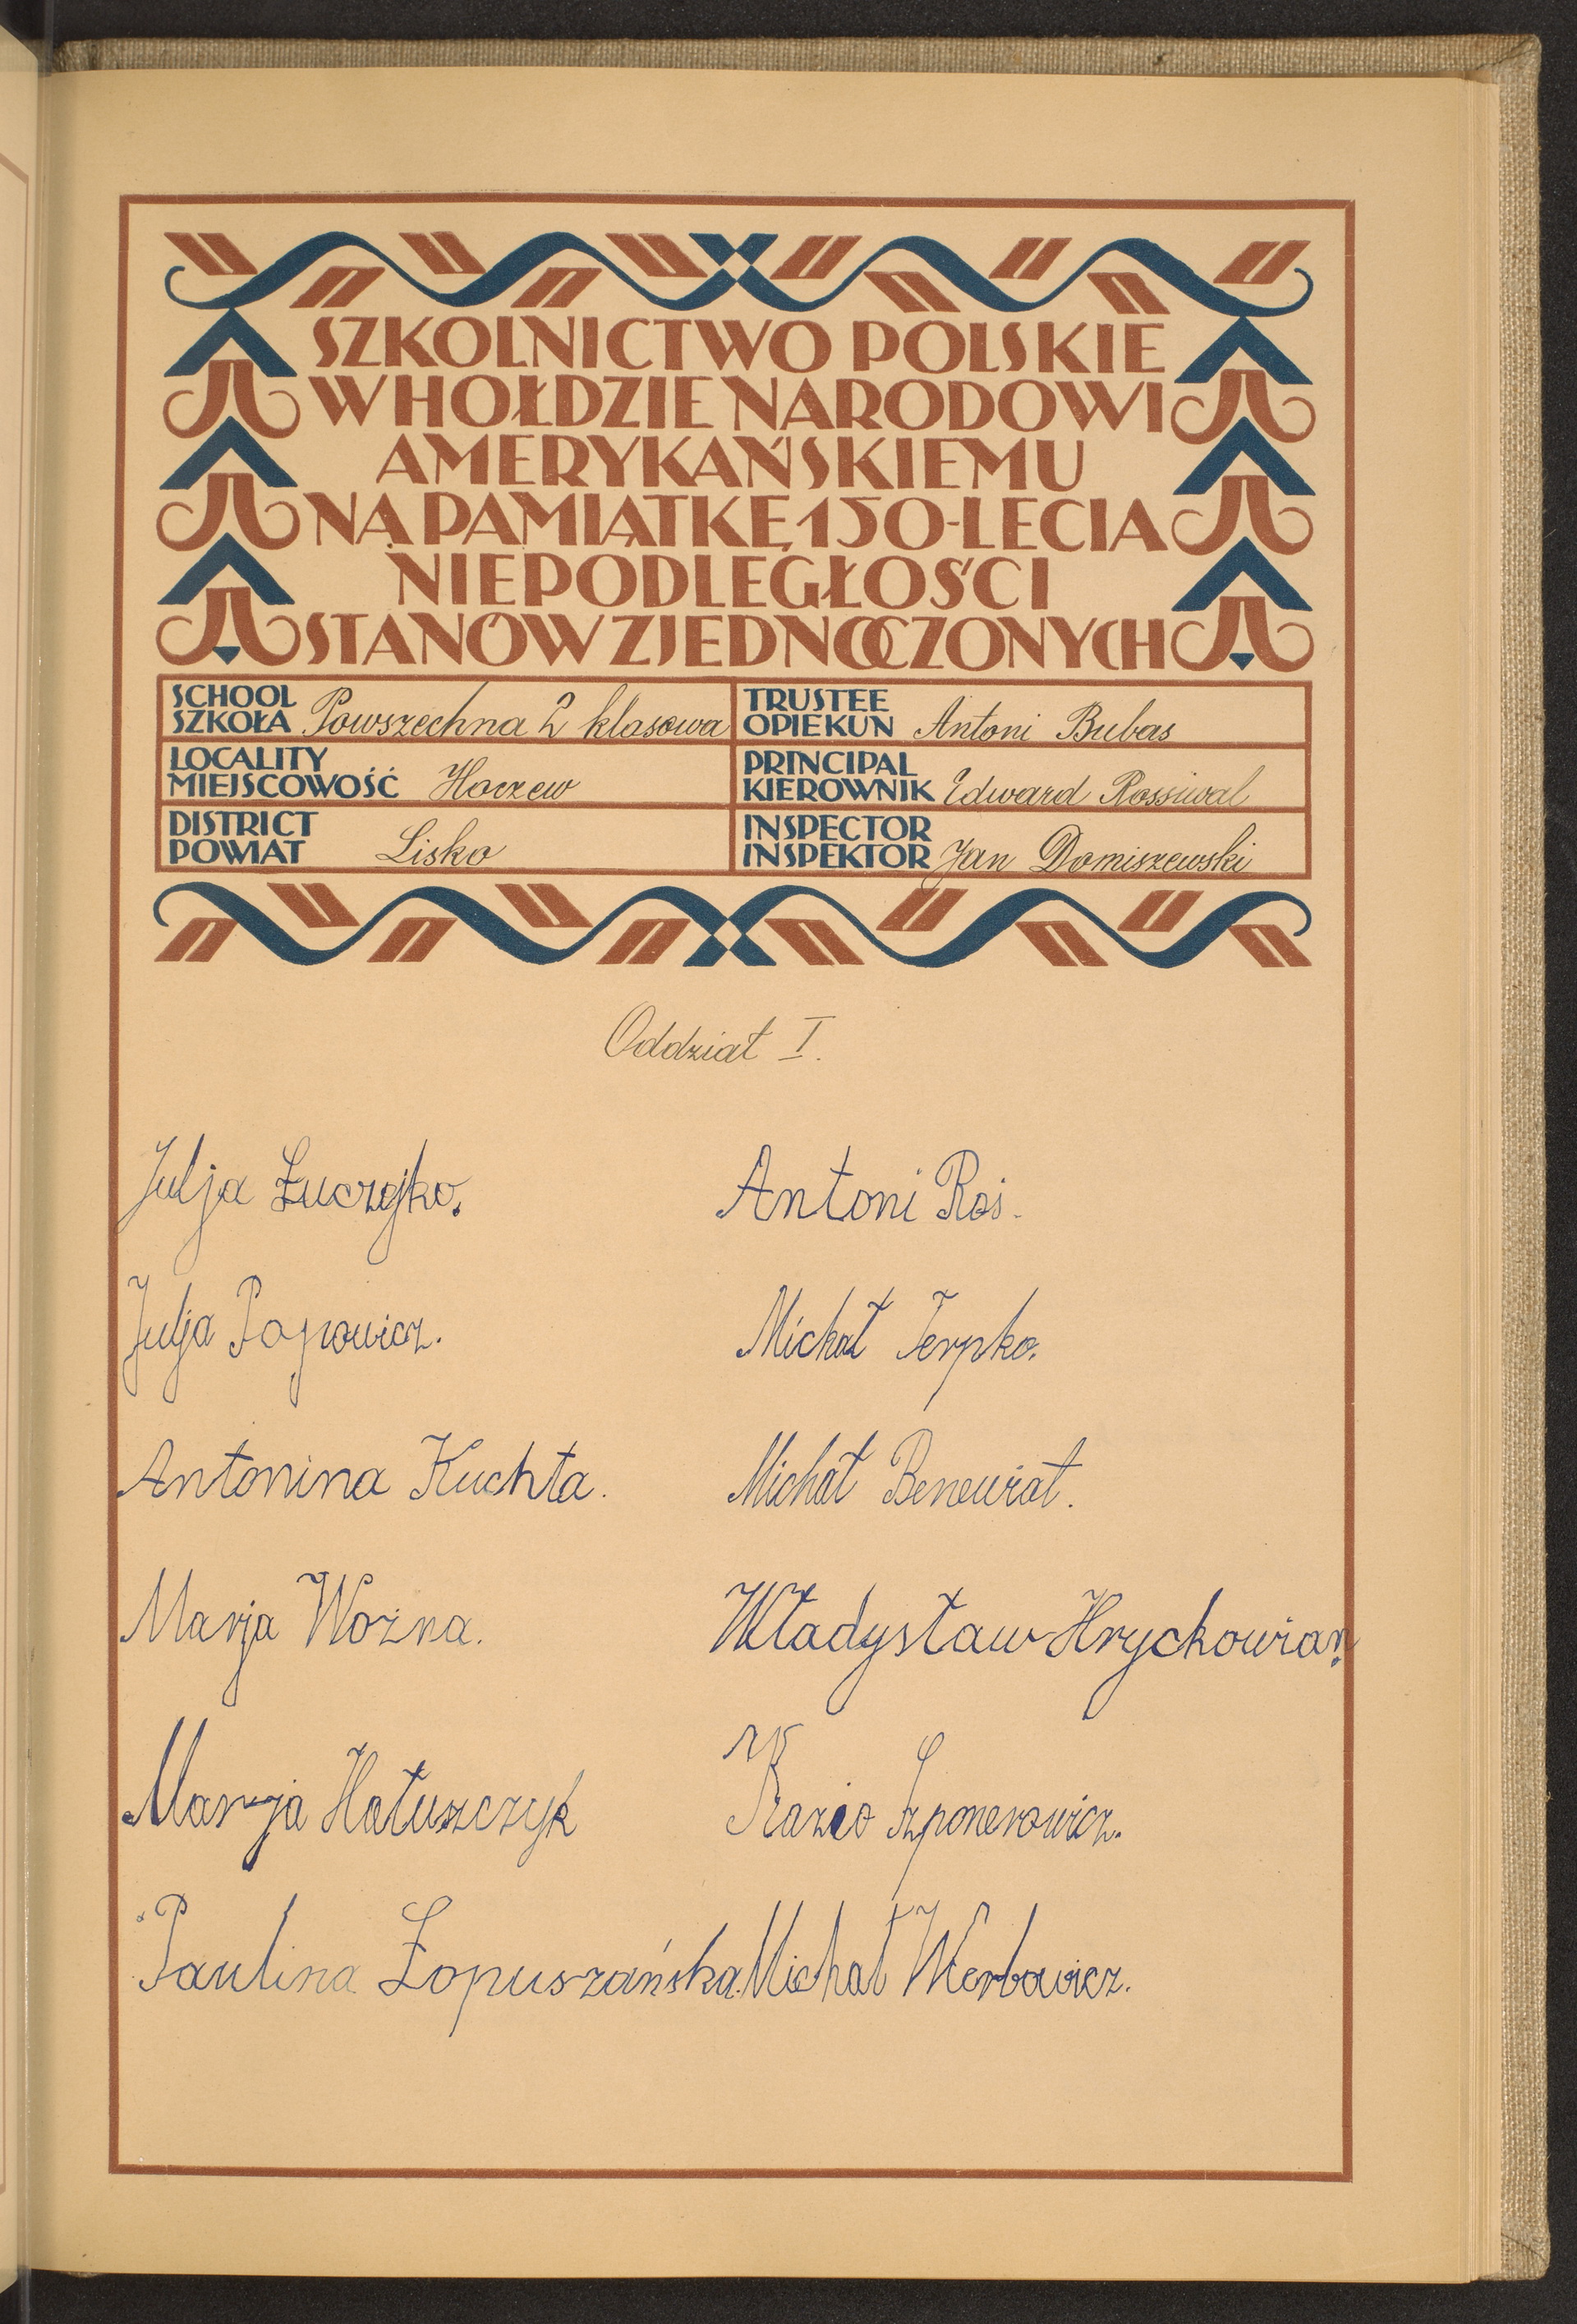 SZKOLNICTWO POLSKIE
W HOŁDZIE NARODOWI
AMERYKAŃSKIEMU
NA PAMIĄTKĘ 150-LECIA
NIEPODLEGŁOŚCI
STANÓW ZJEDNOCZONYCH
SCHOOL
SZKOŁA Powszechna 2 klasowa
TRUSTEE
OPIEKUN Antoni Bubas
LOCALITY
MIEJSCOWOŚĆ Hoczew
PRINCIPAL
KIEROWNIK Edward Rossiwal
DISTRICT
POWIAT Lisko
INSPECTOR
INSPEKTOR Jan Domiszewski
Oddział I.
Julja Łuczejko.
Antoni Roś.
Julja Popowicz.
Michał Terpko.
Antonina Kuchta.
Michał Benewiat.
Marja Wozna.
Władysław Hryckowian.
Marja Hałuszczyk
Kazio Szponerowicz.
Paulina Łopuszańska.
Michał Werbowicz.